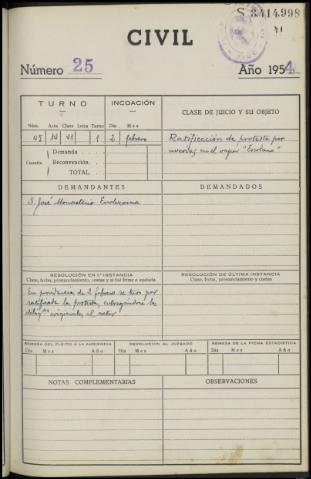 S 3414.998
CIVIL
Número 25 Año 1954
TURNO INCOACIÓN CLASE DE JUICIO Y SU OBJETO
Núm. Acta Clase Letra Turno Día Mes
45 1 2 febrero
Ratificación de protesta por
averías en el vapor
Demanda
Cuantía Reconvención
TOTAL
DEMANDANTES DEMANDADOS
D. José Monasterio
RESOLUCIÓN EN 1.ª INSTANCIA RESOLUCIÓN DE ÚLTIMA INSTANCIA
Clase, fecha, pronunciamiento, costas y si fué firme o apelada Clase, fecha, pronunciamiento y costas
En providencia de 2 febrero se tuvo por
ratificada la protesta, entregándose las
originales al actor
REMESA DEL PLEITO A LA AUDIENCIA DEVOLUCIÓN AL JUZGADO REMESA DE LA FICHA ESTADÍSTICA
Día Mes Año Día Mes Año Día Mes Año
NOTAS COMPLEMENTARIAS OBSERVACIONES